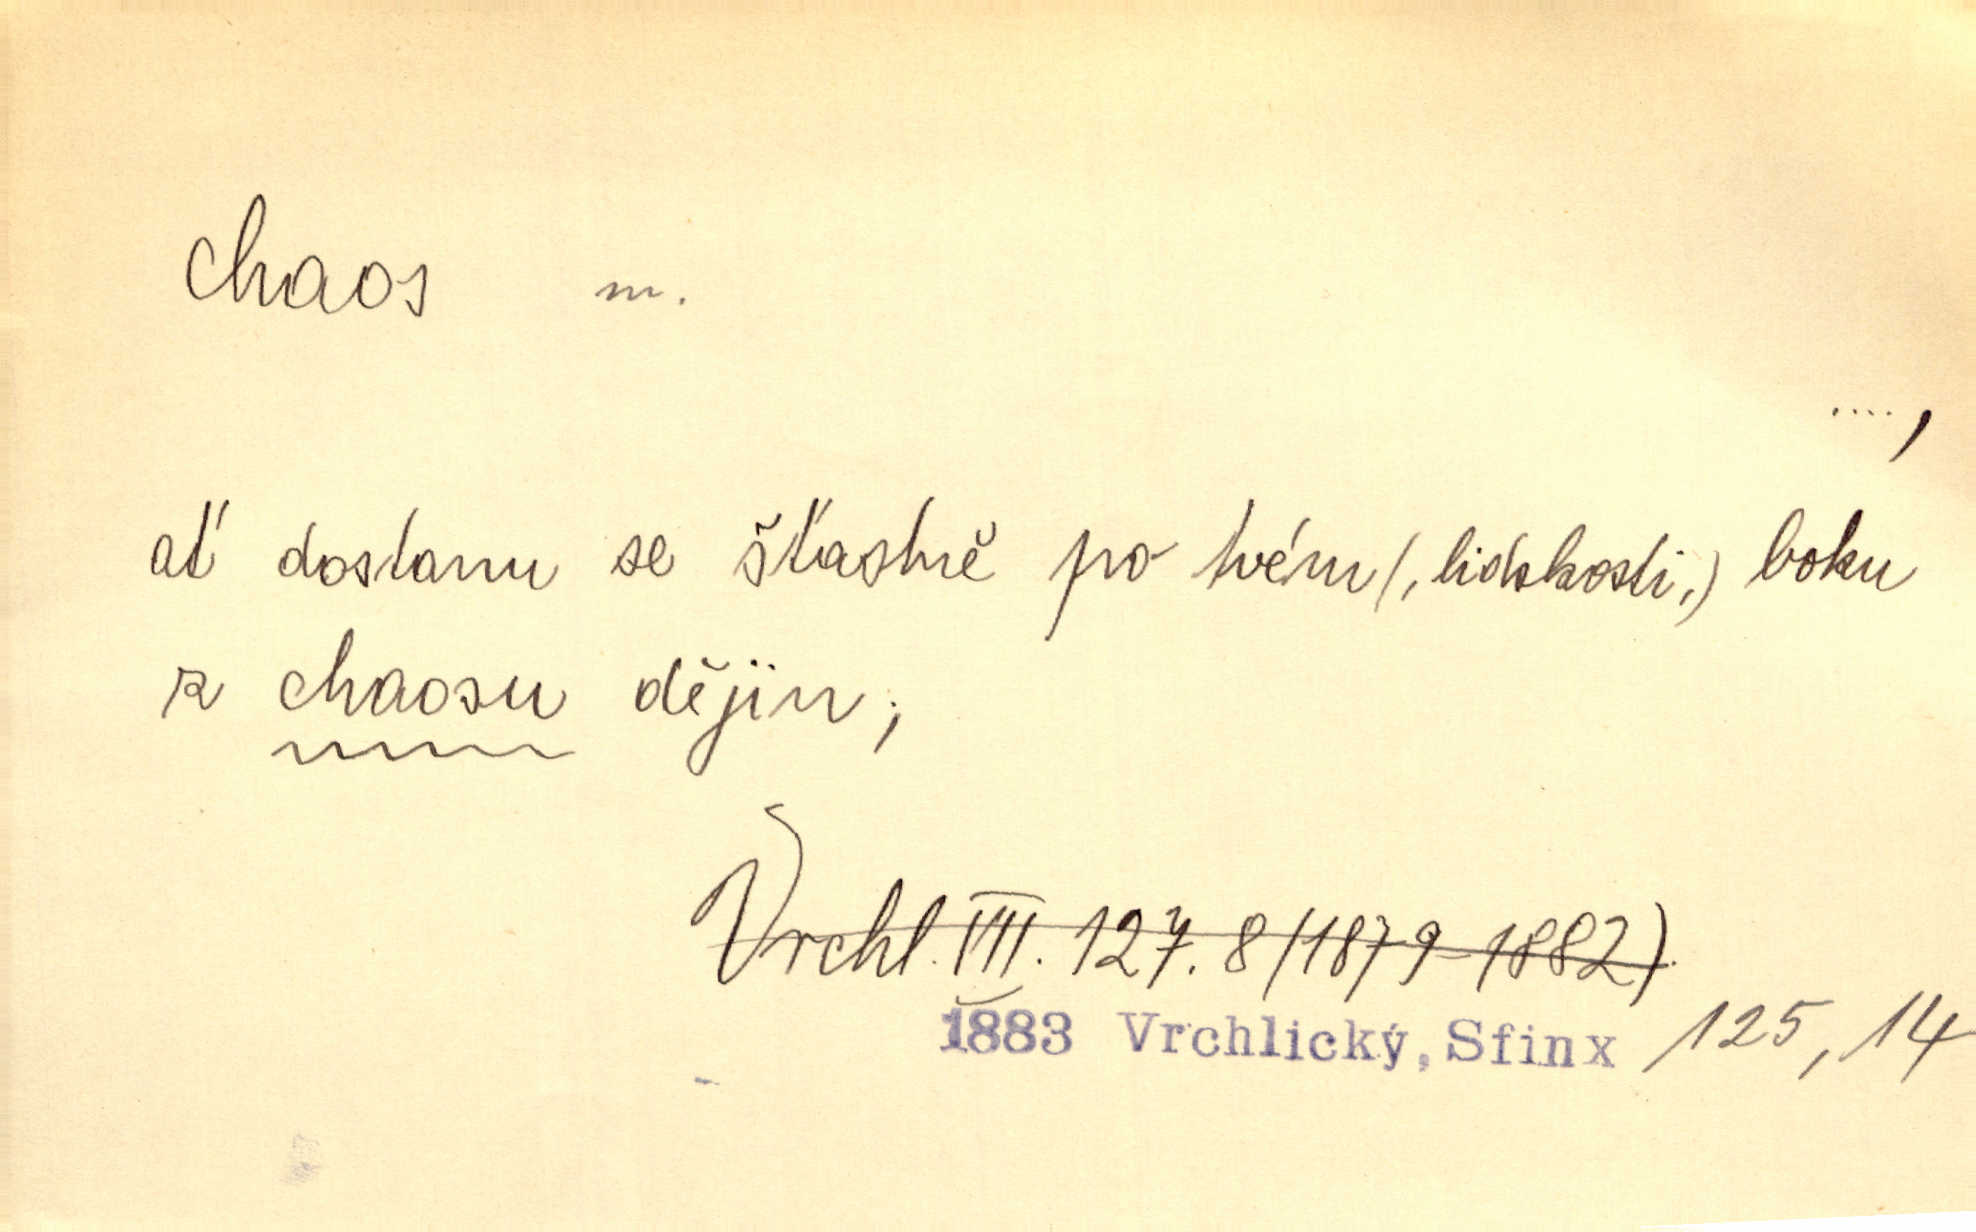 chaos m.
....,
ať dostanu se šťastně po tvém (, lidskosti,) boku
z chaosu dějin;
Vrchl. VII. 127. 8 (1879-1882)
1883 Vrchlický, Sfinx 125, 14